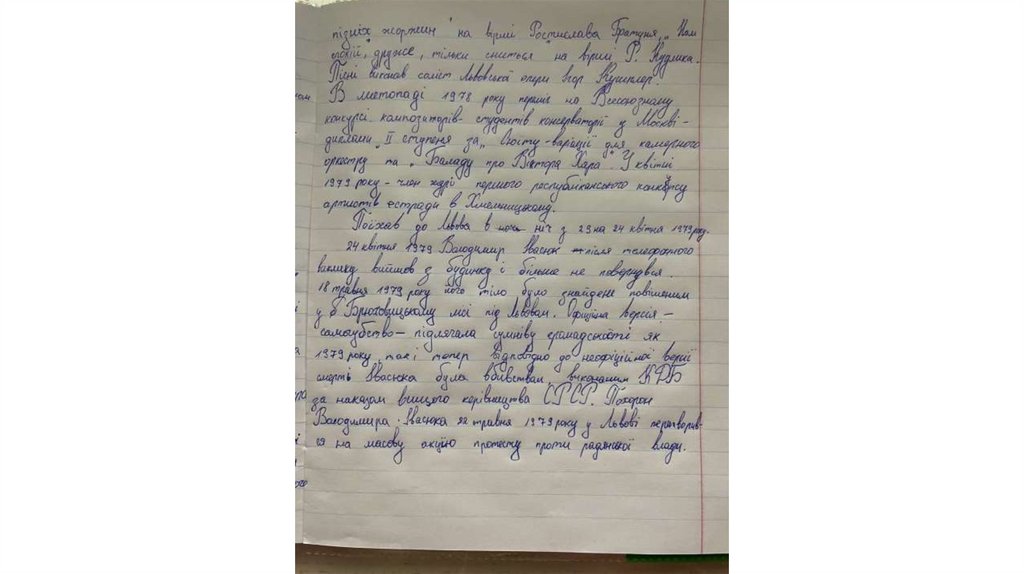 пізніх жоржин" на вірші Ростислава Братуня, "Нам
спокій, друже, тільки сниться" на вірші Р. Кудлика.
Пісні виконав соліст Львовської опери Ігор Кушплер.
В листопаді 1978 року переміг на Всесоюзному
конкурсі композиторів-студентів консерваторії у Москві-
дипломи II ступеня за „Сюїту-варіації для камерного
оркестру та „Баладу про Віктора Хара". У квітні
1979 року - член журі першого республіканського конкурсу
артистів естради в Хмельницькому.
Поїхав до Львова в ніч з 23 на 24 квітня 1979 року.
24 квітня 1979 Володимир Івасюк після телефонного
виклику вийшов з будинку і більше не повернувся.
18 травня 1979 року його тіло було знайдене повішеним
у Брюховицькому лісі під Львовом. Офіційна версія -
самогубство - підлягала сумніву громадськості як
1979 року, так і тепер Відповідно до неофіційної версії
смерть Івасюка була вбивством виконаним КДБ
за наказом вищого керівництва СРСР. Похорон
Володимира Івасюка 22 травня 1979 року у Львові перетворив-
ся на масову акцію протесту проти радянської влади.